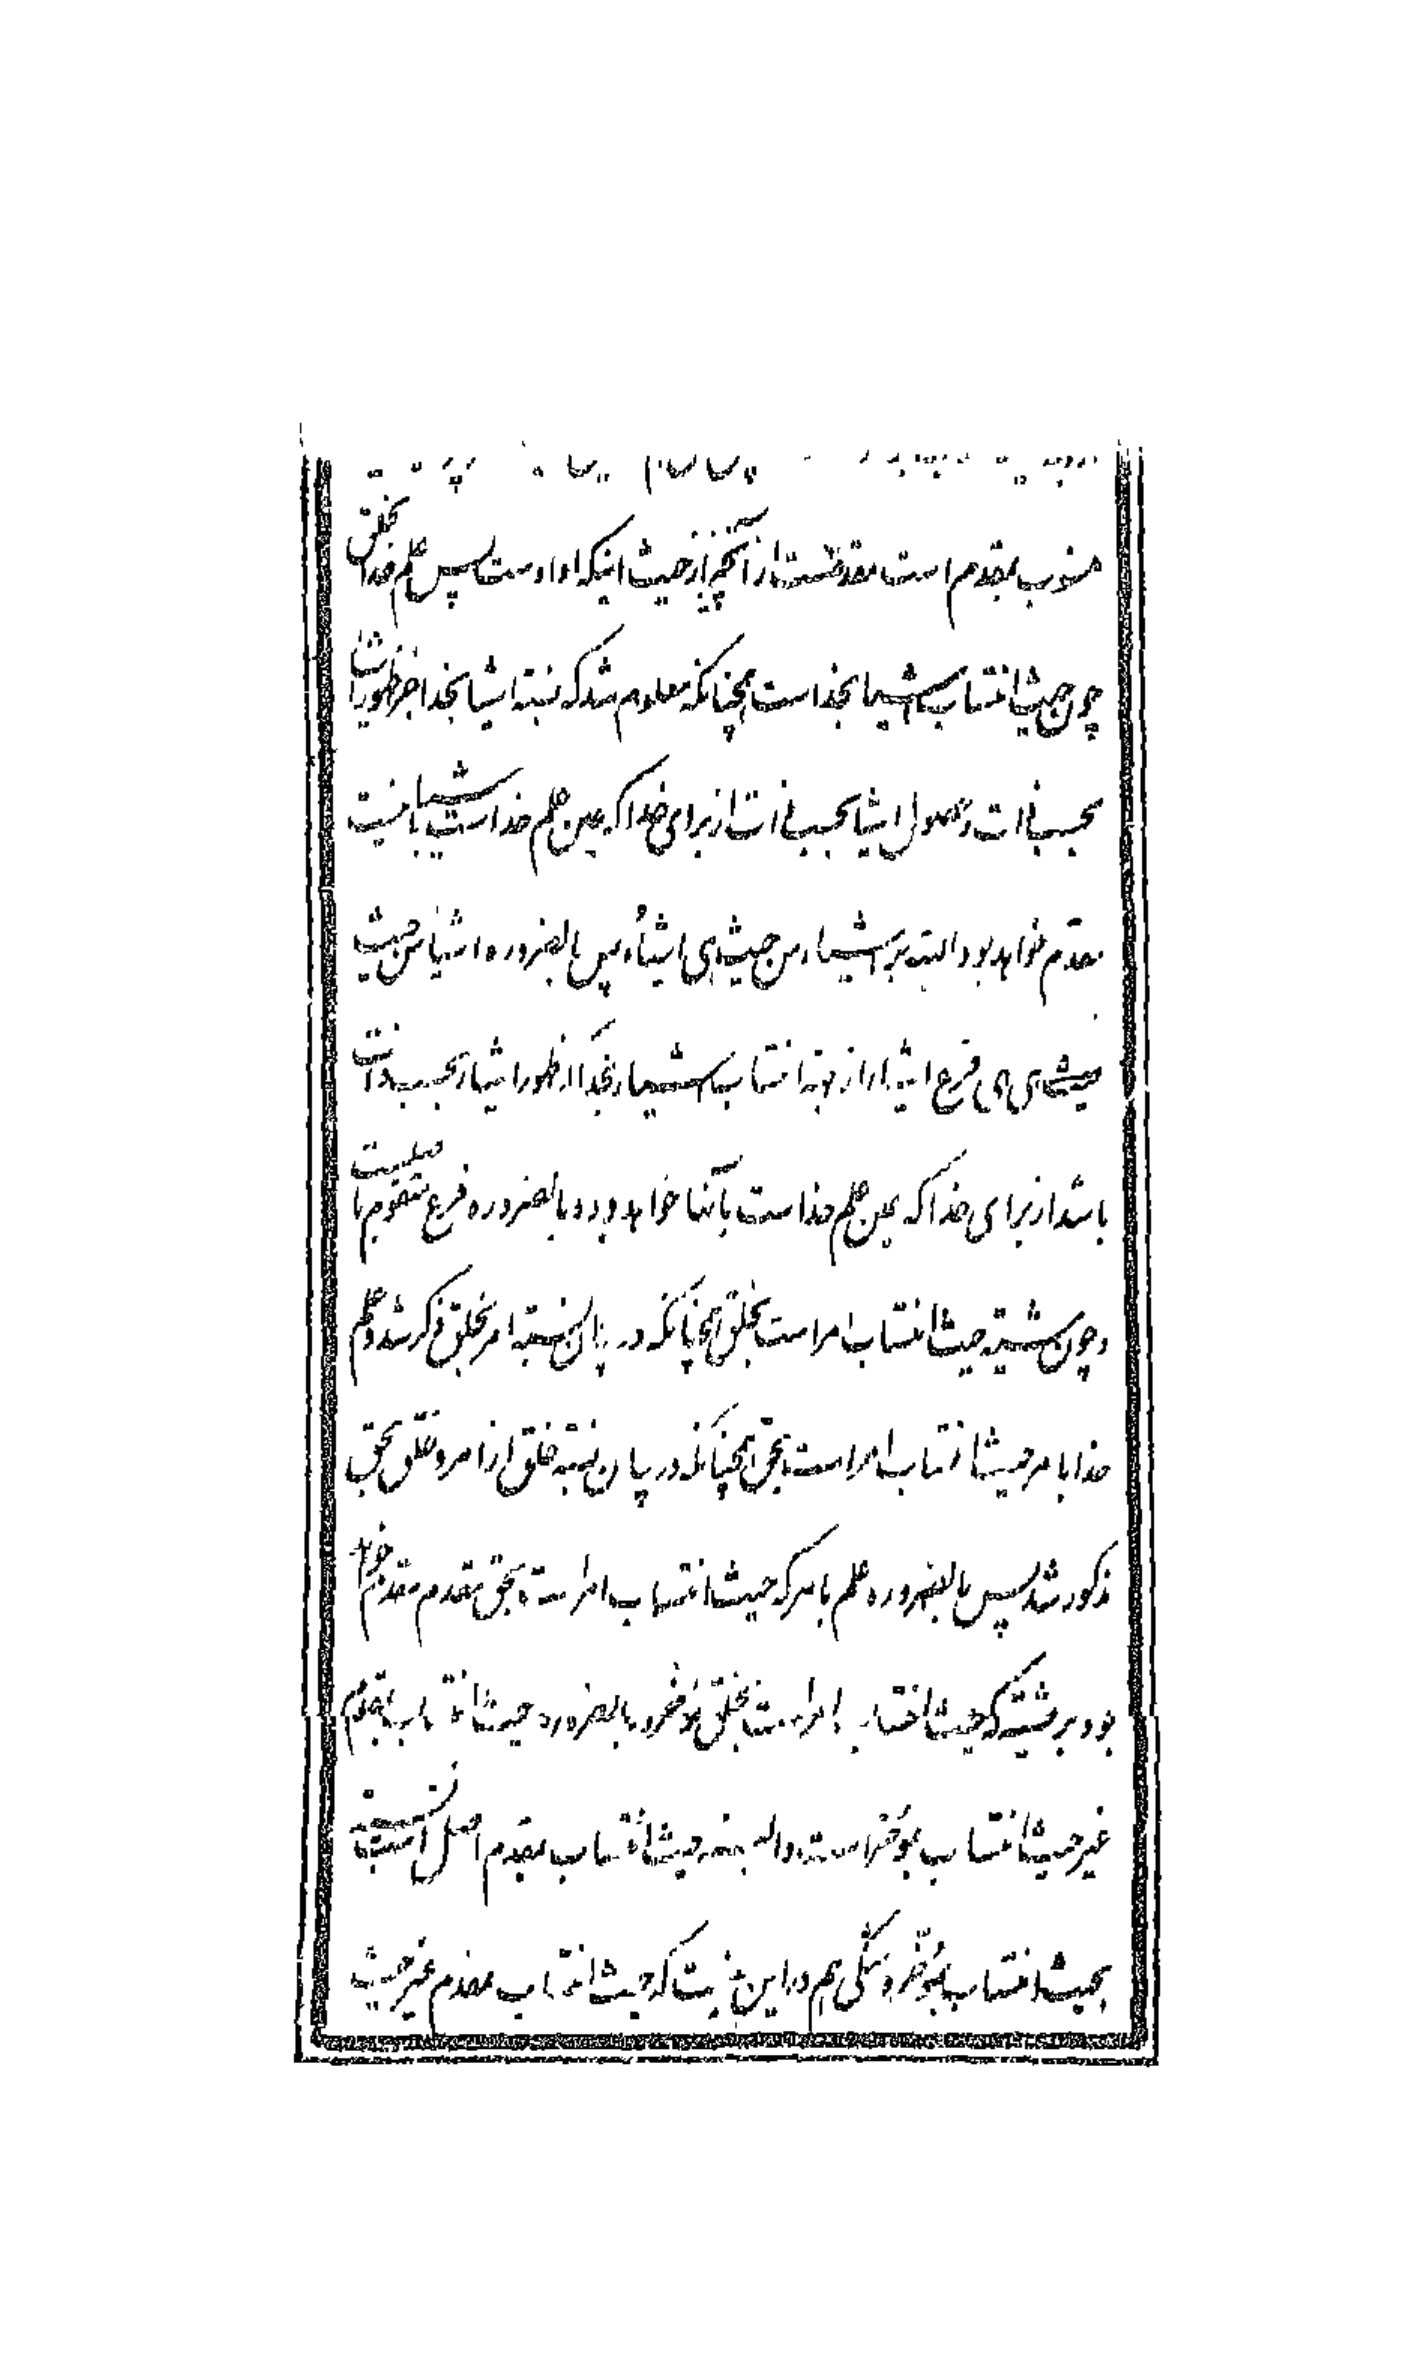 منسوب بمقدم است مقدمست از آنچیز از حیث اینکه او اوست پس علم خدا بخلق
چون حیث انتساب اشیا بخداست همچنانکه معلوم شد که نسبة اشیا بخدا جز ظهور اشیا
بحسب ذات و حصول اشیا بحسب ذات از برای خدا که عین علم خداست باشیا نیست
مقدم خواهد بود البته بر اشیاء من حیث هی اشیاء پس بالضروره اشیا من حیث
حیث هی هی فرع اشیا از جهة انتساب اشیاء بخدا از ظهور اشیا بحسب ذات
باشد از برای خدا که عین علم خداست بآنها خواهد بود و بالضروره فرع متقوم با
و چون مشیة حیث انتساب امر است بخلق همچنانکه در بیان نسبة امر بخلق ذکر شد و علم
خدا بامر حیث انتساب امر است بحق همچنانکه در بیان نسبة خلق از امر و خلق بحق
مذکور شد پس بالضروره علم بامر که حیث انتساب امر است بحق مقدم مقدم خواهد
بود بر مشیة که حیث انتساب امر است بخلق مؤخر و بالضروره حیث انتساب بمقدم
غیر حیث انتساب بمؤخر است و البته حیث انتساب بمقدم اصل است نسبة
بحیث انتساب بمؤخر و شکی هم در این نیست که حیث انتساب بمقدم غیر حیث